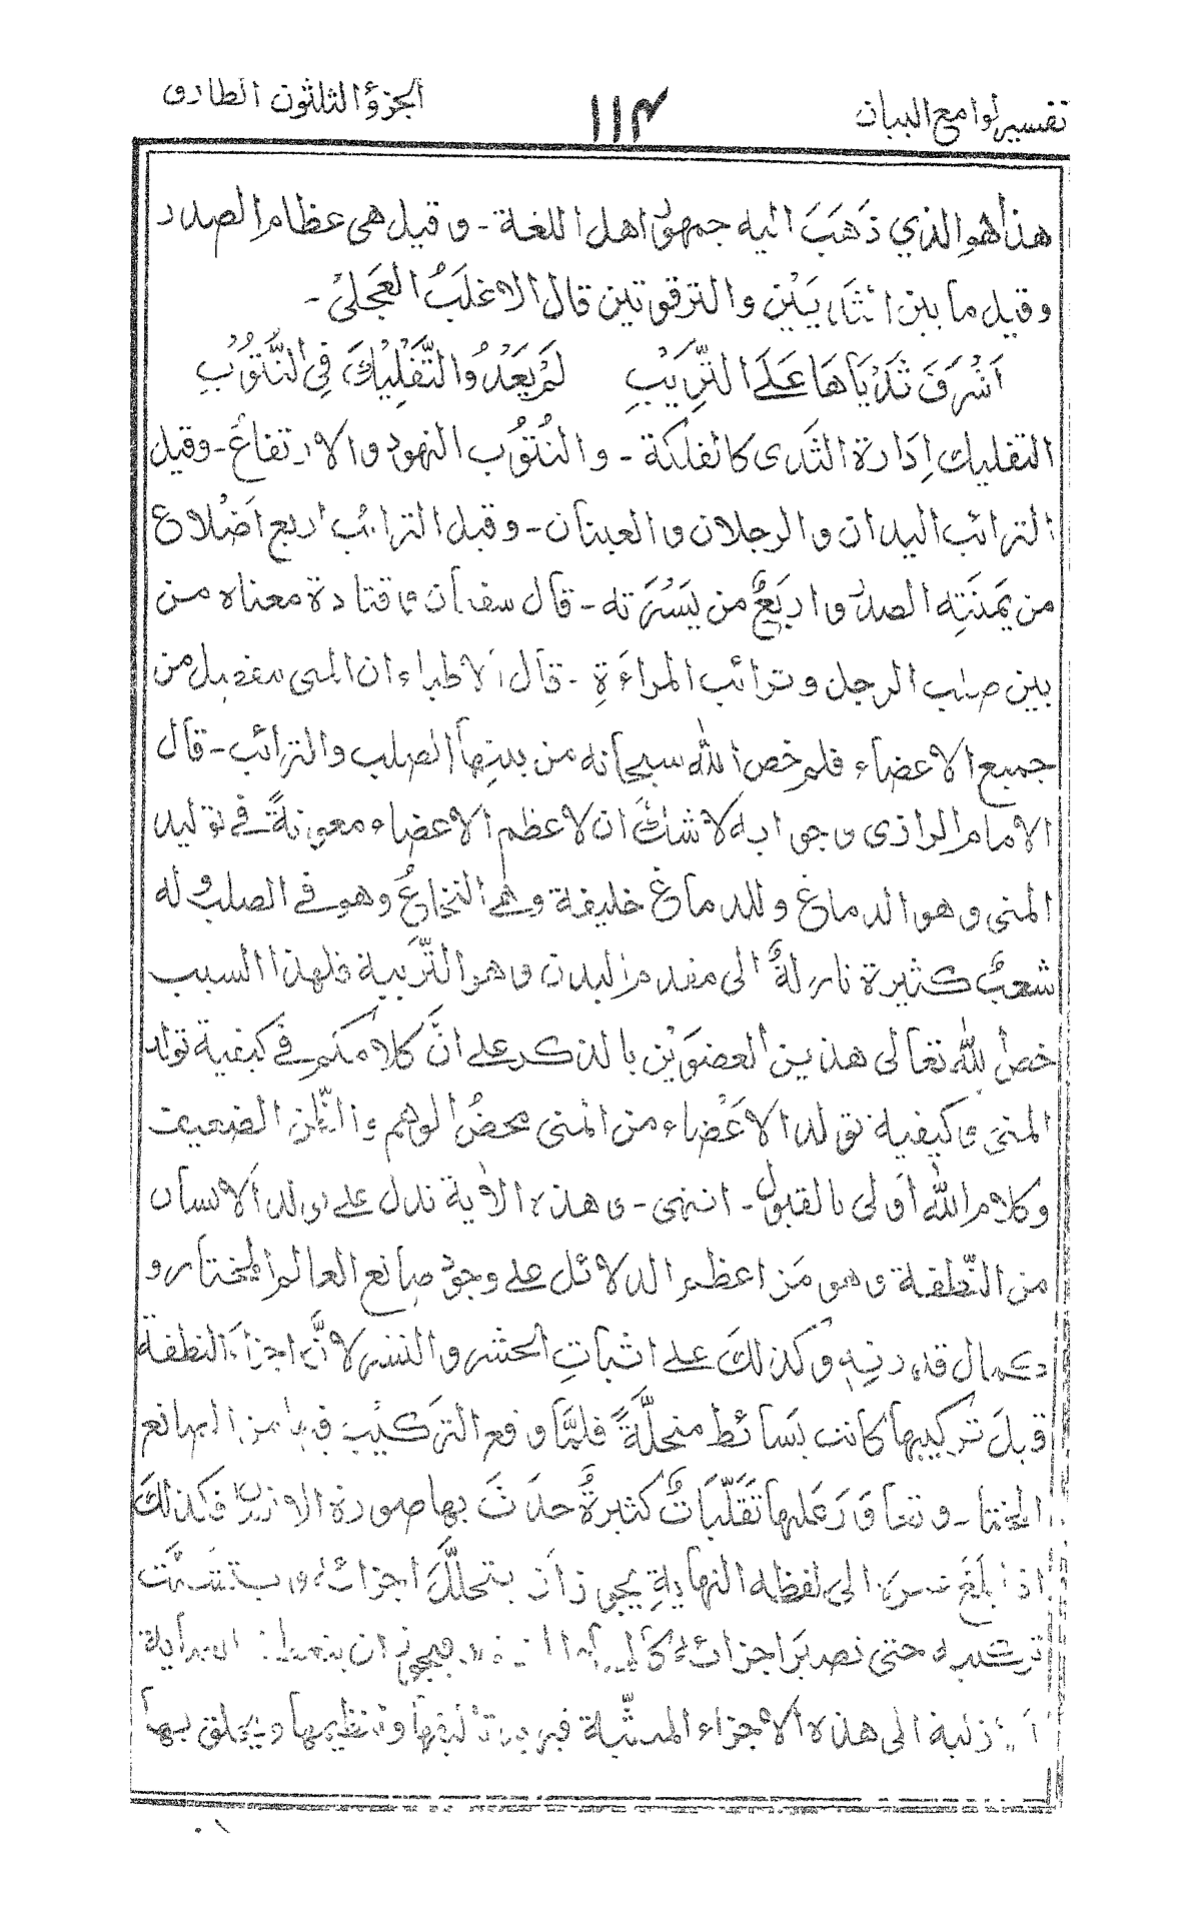 تفسير لوامع البيان ١١٣ الجزؤ الثلثون الطارق
هذا هو الذي ذَهَبَ اليه جمهور اهل اللغة - وقيل هى عظام الصدر
وقيل ما بين الثَديَيْن والترقوتين قال الاغلَبُ العَجلىْ -
اَشْرَفَ ثَدْيَاهَا عَلَے التَّرِيْبِ لَمْ يَعْدُوَا التَّفْلِيْكَ فِى النُّتُوْبِ
التفليك اِدَارة الثَدى كالفلكة - والنُتُوُب النهود والارتفاعُ - وقيل
الترائب اليدان والرجلان والعينان - وقيل الترائب اربع اَضْلاع
من يَمنَتِه الصدر واربَعٌ من يَسْرَته - قال سفيان وقتادة معناه من
بين صلب الرجل وترائب المراءَةِ - قال الاطباء ان المنى منفصل من
جميع الاعضاء فلم خص اللّٰه سبحانه من بينها الصلب والترائب - قال
الامام الرازى وجوابه لا شكَّ ان لاعظم الاعضاء معونةً فے توليد
المنى وهو الدماغ وللدماغ خليفة وهے النخاعُ وهو فے الصلب وله
شعبٌ كثيرة نازلةٌ الى مقدم البدن وهو التَّرِيبة فلهذا السبب
خص اللّٰه تعالى هذين العضوَيْن بالذكر على انَّ كلامكم فے كيفية تولد
المنى وكيفية تولد الاعْضاء من المنى محضُ الوهم والظَّن الضعيف
وكلام اللّٰه اَولى بالقبول - انتهى - وهذه الأية تدل علے تولد الانسان
من النُّطفة وهو مَن اعظم الدلائل علے وجود صانع العالم المختار و
كمال قدرتِه وكذلكَ علے اثباتِ الحشر والنشر لانَّ اجزاءَ النطفة
قبلَ تركيبها كانت بَسائط منحلَّةً فلمَّا وقع التركيب فيها من الصانع
المختار - وتعاوَرَ عليها تَقَلّبَاتٌ كثيرةٌ حدَثَ بها صورة الانسان فكذلكَ
اذا بلغَ الى لفظه النهايةِ يجوز اَن يتحللَّ اجزائه ويتشتَّت
تركيبه حتى تصير اجزائه فيجوز ان
الى هذه الاجزاء المتشتّتة فيريد تاليفها وتنظيمها ويخلق بها